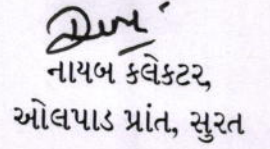 નાયબ કલેકટર,
ઓલપાડ પ્રાંત, સુરત